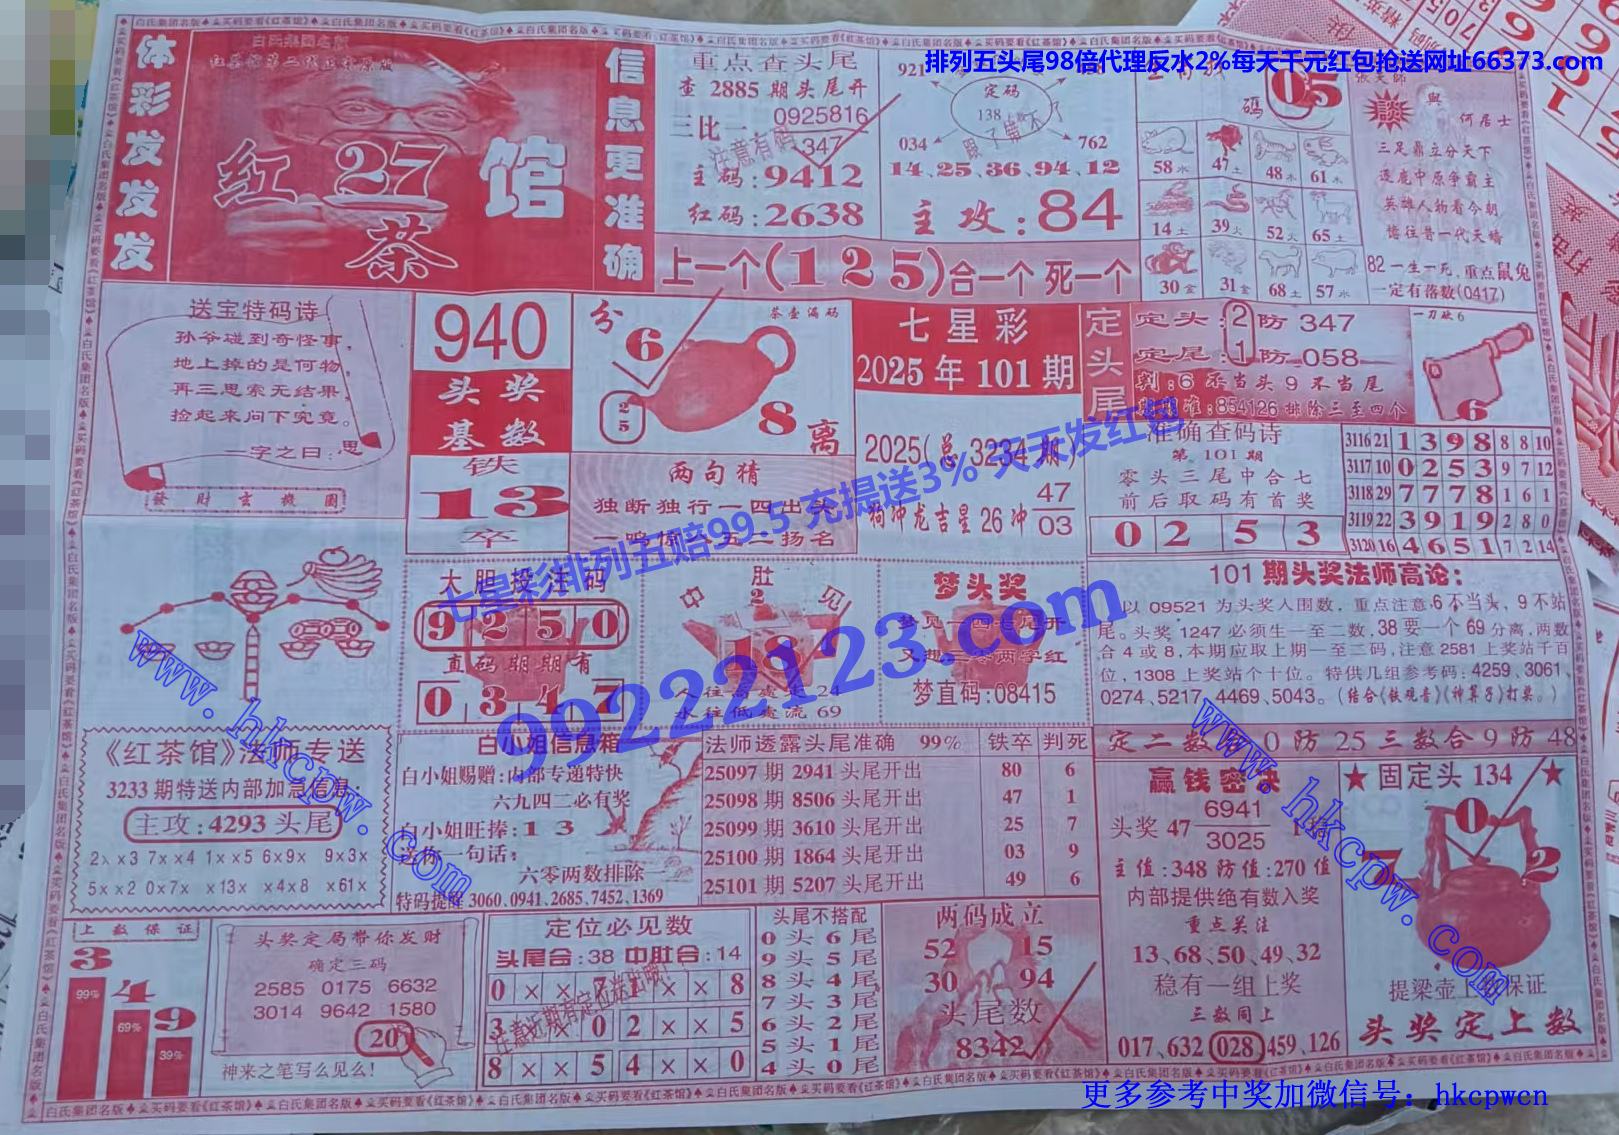 排列五头尾98倍代理反水2%每天千元红包抢送网址66373.com
体彩发发发
白氏集团名版
红茶馆第二代正宗原版
红 27 馆
茶
信息更准确
重点查头尾
查 2885 期头尾开
三比一 0925816
347
注意有码
主码:9412
红码:2638
921
定码
138
034
762
14.25.36.94.12
主攻:84
上一个(125)合一个 死一个
码 05
58水 47土 48木 61水
14土 39火 52火 65土
30金 31金 68土 57水
張天師
談
與
何居士
三足鼎立分天下
逐鹿中原争霸主
英雄人物看今朝
82一生一死,重点鼠兔
一定有落数(0417)
送宝特码诗
孙爷碰到奇怪事,
地上掉的是何物,
再三思索无结果,
捡起来问下究竟。
一字之曰:思
發財玄機圖
940
头奖
基数
铁
13
卒
分 6
茶壶漏码
2
5
8 离
两句猜
独断独行一四出头
一鸣惊人五二扬名
七星彩
2025年101期
2025(总3234期)
狗冲龙吉星26冲 47
03
定头尾
定头:2防 347
定尾:1防 058
判:6 不当头 9 不当尾
准:854126 排除三至四个
一刀砍6
6
准确查码诗
第 101 期
零头三尾中合七
前后取码有首奖
0 2 5 3
3116 21 1 3 9 8 8 8 10
3117 10 0 2 5 3 9 7 12
3118 29 7 7 7 8 1 6 1
3119 22 3 9 1 9 2 8 0
3120 16 4 6 5 1 7 2 14
七星彩排列五赔99.5 充提送3% 天天发红包
99222123.com
大胆投注码
9 2 5 0
直码期期有
0 3 4 7
中 肚 见
2
人往高处走24
水往低处流 69
梦头奖
梦见一四老尾开
又想三零两字红
梦直码:08415
101 期头奖法师高论:
以 09521 为头奖入围数，重点注意,6不当头, 9 不站
尾。头奖 1247 必须生一至二数,38 要一个 69 分离,两数
合 4 或 8,本期应取上期一至二码,注意 2581 上奖站千百
位, 1308 上奖站个十位。特供几组参考码: 4259、3061、
0274、5217、4469、5043。(结合《铁观音》《神算子》打桌。)
定二数 0 防 25 三数合 9 防 48
《红茶馆》法师专送
3233 期特送内部加急信息:
主攻:4293 头尾
2xx3 7xx4 1xx5 6x9x 9x3x
5xx2 0x7x x13x x4x8 x61x
www.hkcpw.com
白小姐信息箱
白小姐赐赠:内部专递特快
六九四二必有奖
白小姐旺捧:1 3
送你一句话:
六零两数排除
特码提醒 3060、0941、2685、7452、1369
法师透露头尾准确 99% 铁卒 判死
25097 期 2941 头尾开出 80 6
25098 期 8506 头尾开出 47 1
25099 期 3610 头尾开出 25 7
25100 期 1864 头尾开出 03 9
25101 期 5207 头尾开出 49 6
赢钱密决
头奖 47 6941
3025
主值:348 防值:270 值
内部提供绝有数入奖
重点关注
13、68、50、49、32
稳有一组上奖
三数同上
017、632 028 459、126
★固定头 134★
0
7 2
提梁壶上奖保证
头奖定上数
www.hkcpw.com
上数保证
3 4 9
99% 69% 39%
头奖定局带你发财
确定三码
2585 0175 6632
3014 9642 1580
20
神来之笔写么见么!
定位必见数
头尾合:38 中肚合:14
0 × × 7 1 × × 8
3 × × 0 2 × × 5
8 × × 5 4 × × 0
头尾不搭配
0 头 6 尾
9 头 5 尾
8 头 4 尾
7 头 3 尾
6 头 2 尾
5 头 1 尾
4 头 0 尾
两码成立
52 15
30 94
头尾数
8342
更多参考中奖加微信号：hkcpwcn